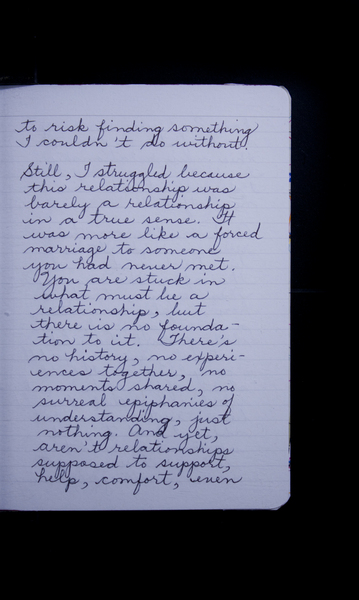 to risk finding something
I couldn't do without.
Still, I struggled because
this relationship was
barely a relationship
in a true sense. It
was more like a forced
marriage to someone
you had never met.
You are stuck in
what must be a
relationship, but
there is no founda-
tion to it. There's
no history, no experi-
ences together, no
moments shared, no
surreal epiphanies of
understanding, just
nothing. And yet,
aren't relationships
supposed to support,
help, comfort, even